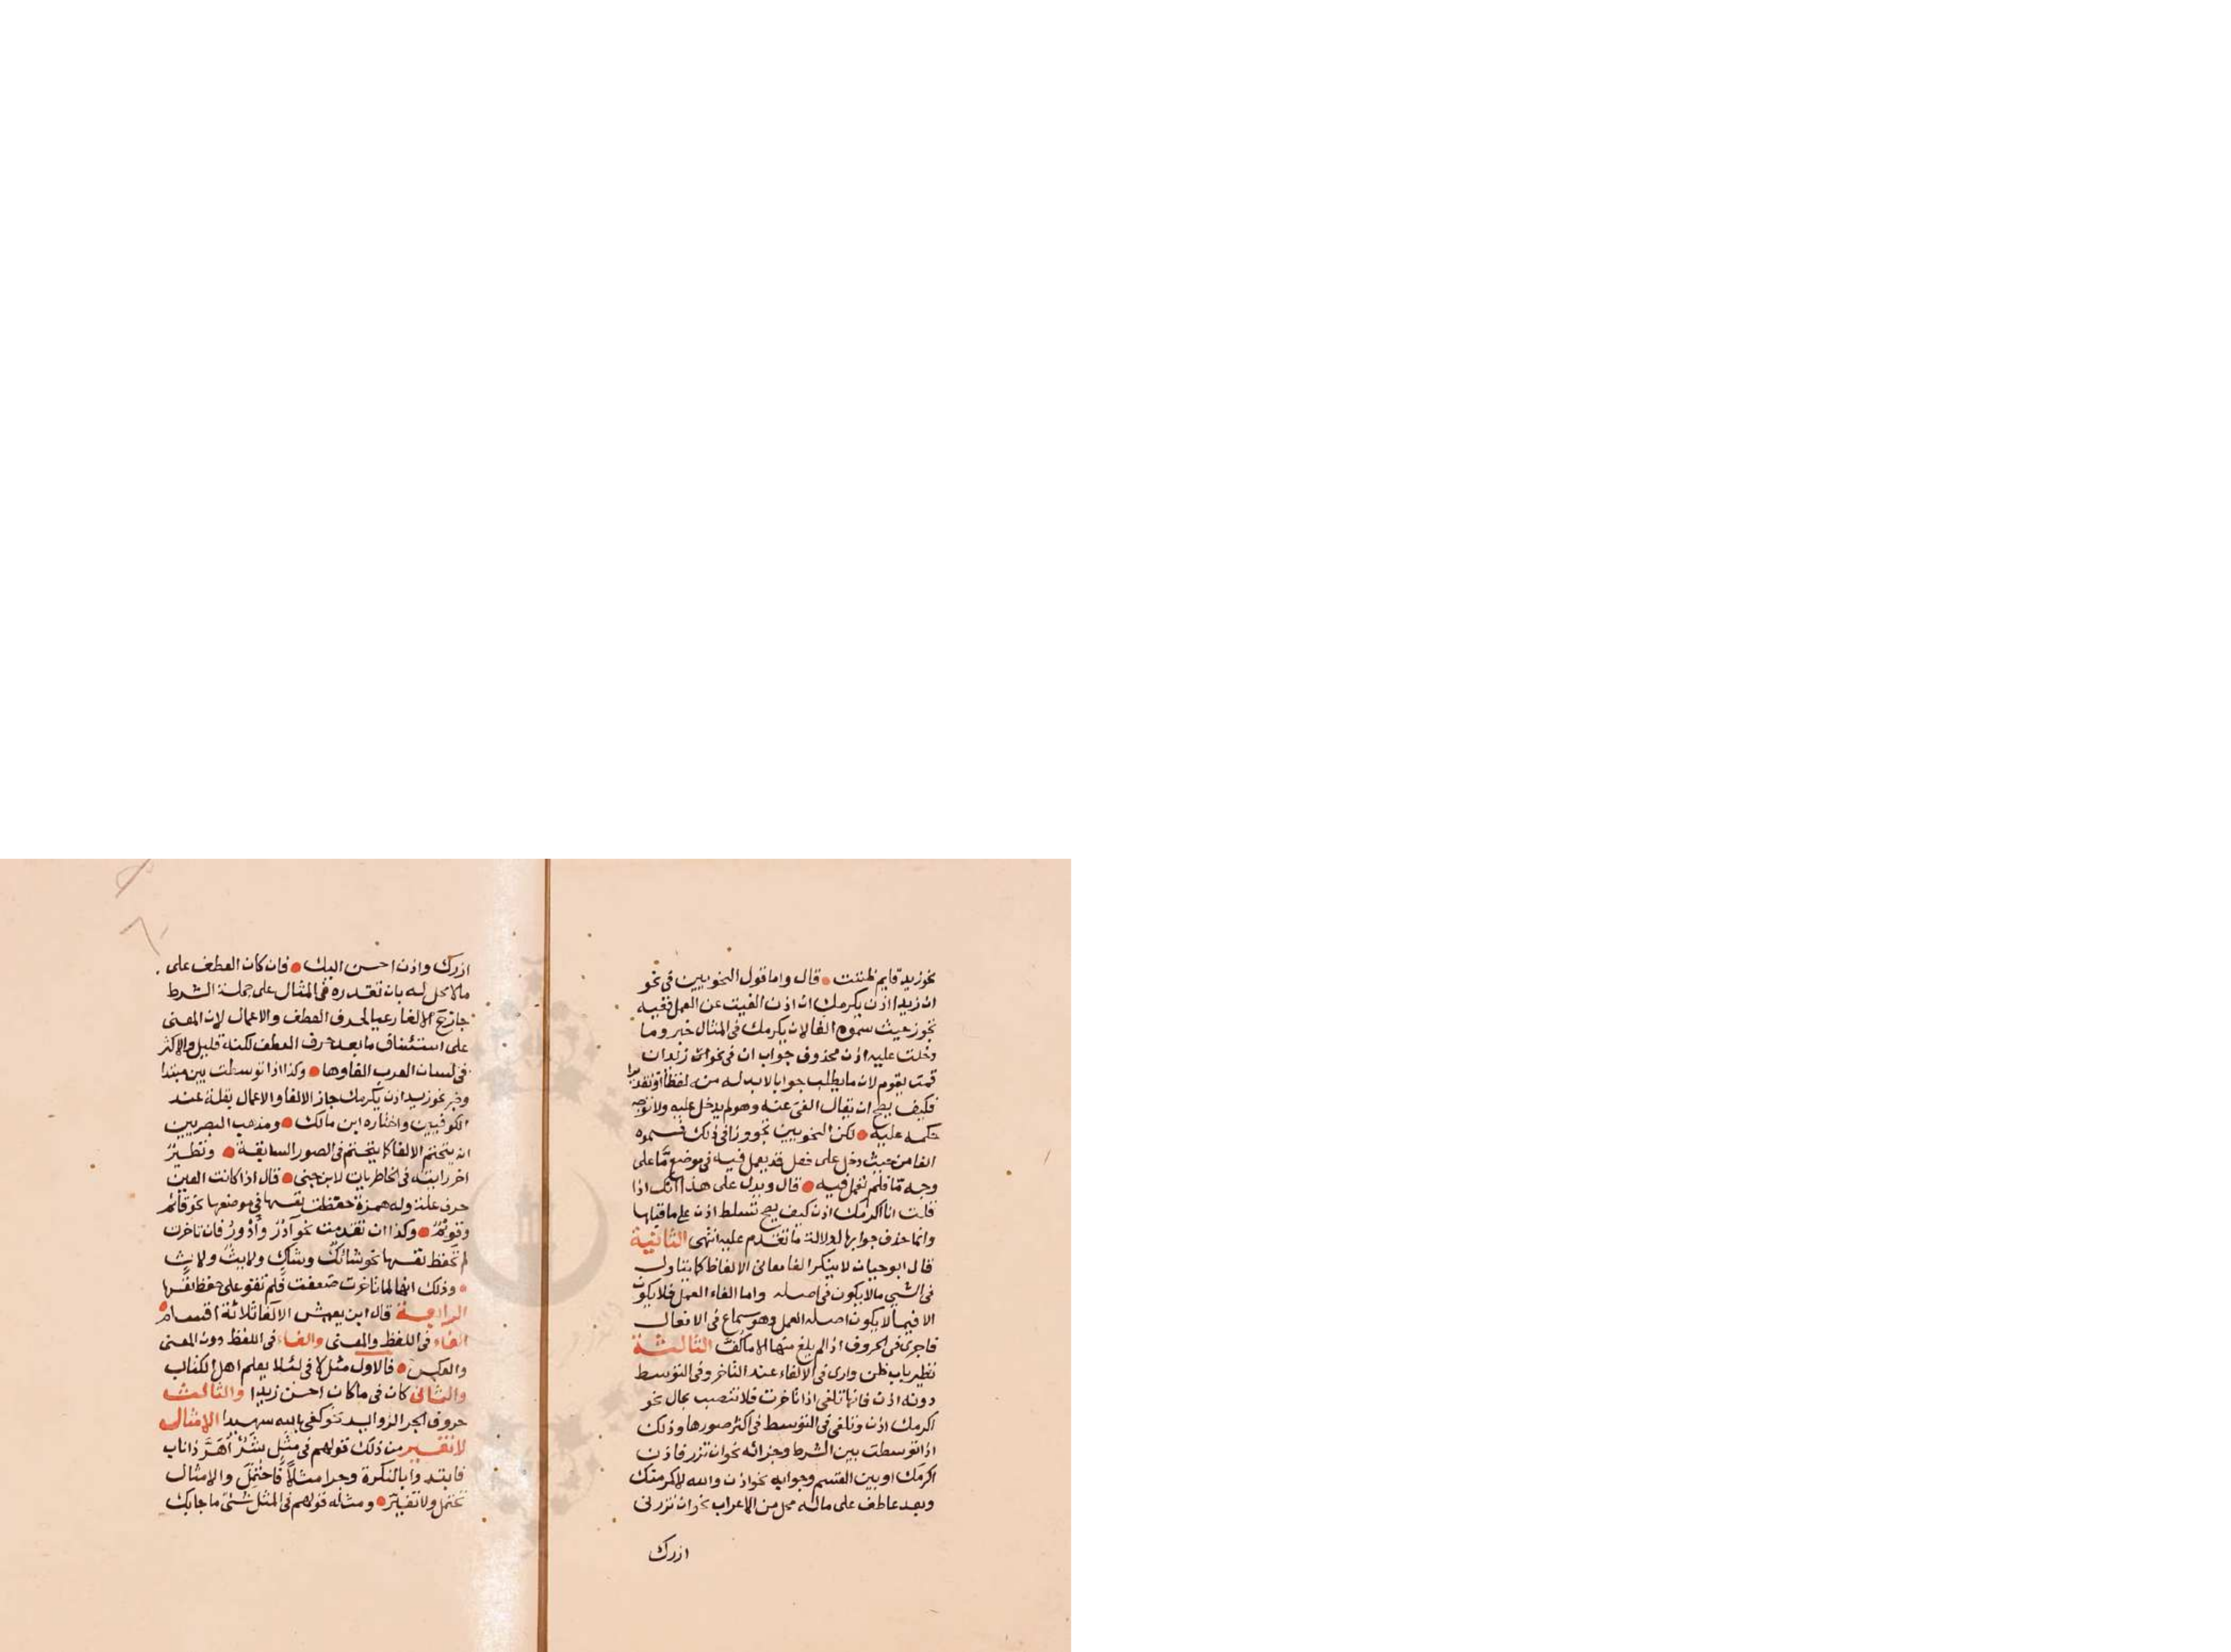 نحو زيد قايم ظننت قال واما قول النحويين في نحو
ان زيدا اذن يكرمك ان اذن الغيت عن العمل ففيه
تجوز حيث سموه الغا لان يكرمك في المثال خبر وما
دخلت عليه اذن محذوف جواب ان في نحو ان زيد ان
قمت يقوم لان ما يطلب جوابا لابد له منه لفظا او تقديرا
فكيف يصح ان يقال الغي عنه وهو لم يدخل عليه ولا توجه
حكمه عليه لكن النحويين تجوزوا في ذلك فسموه
الغا من حيث دخل على فعل قد يعمل فيه في موضع ما على
وجه ما فلم تعمل فيه قال ويدل على هذا انك اذا
قلت انا اكرمك اذن كيف يصح تسلط اذن على ما قبلها
وانما حذف جوابها لدلالة ما تقدم عليه انتهى الثانية
قال ابو حيان لا ينكر الغا معاني الالفاظ كما يتاول
في الشيء ما لا يكون في اصله واما الغاء العمل فلا يكون
الا فيما لا يكون اصله العمل وهو سماع في الافعال
فاجرى في الحروف اذ لم يلغ منها الا ما كف الثالثة
نظير باب ظن وارى في الالغاء عند التاخر وفي التوسط
دونه اذن فانها تلغى اذا تاخرت فلا تنصب بحال نحو
اكرمك اذن وتلغى في التوسط في اكثر صورها وذلك
اذا توسطت بين الشرط وجزائه نحو ان تزر فاذن
اكرمك او بين القسم وجوابه نحو اذن والله لاكرمنك
وبعد عاطف على ما له محل من الاعراب نحو ان تزرني
ازرك
ازرك واذن احسن اليك فان كان العطف على
ما لا محل له بان تقدره في المثال على جملة الشرط
جاز الالغا رعيا لحرف العطف والاعمال لان المعنى
على استئناف ما بعد حرف العطف لكنه قليل والاكثر
في لسان العرب الغاوها وكذا اذا توسطت بين مبتدا
وخبر نحو زيد اذن يكرمك جاز الالغا والاعمال بقلة عند
الكوفيين واختاره ابن مالك ومذهب البصريين
انه يتحتم الالغا كما يتحتم في الصور السابقة ونظير
اخر رايته في الخاطريات لابن جني قال اذا كانت العين
حرف علة وله همزة حفظت نفسها في موضعها نحو قائم
وقوئم وكذا ان تقدمت نحو آدر وأدور فان تاخرت
لم تحفظ نفسها نحو شائك وشاك ولايث ولاث
وذلك انها لما تاخرت ضعفت فلم تقو على حفظ نفسها
الرابعة قال ابن يعيش الالغا ثلاثة اقسام
الغاء في اللفظ والمعنى والغاء في اللفظ دون المعنى
والعكس فالاول مثل لا في لئلا يعلم اهل الكتاب
والثاني كان في ما كان احسن زيدا والثالث
حروف الجر الزوايد نحو كفى بالله شهيدا الامثال
لا تغير من ذلك قولهم في مثل شر أهر ذا ناب
فابتدوا بالنكرة وجرا مثلا فاحتمل والامثال
تحتمل ولا تغير ومثله قولهم في المثل شيء ما جا بك